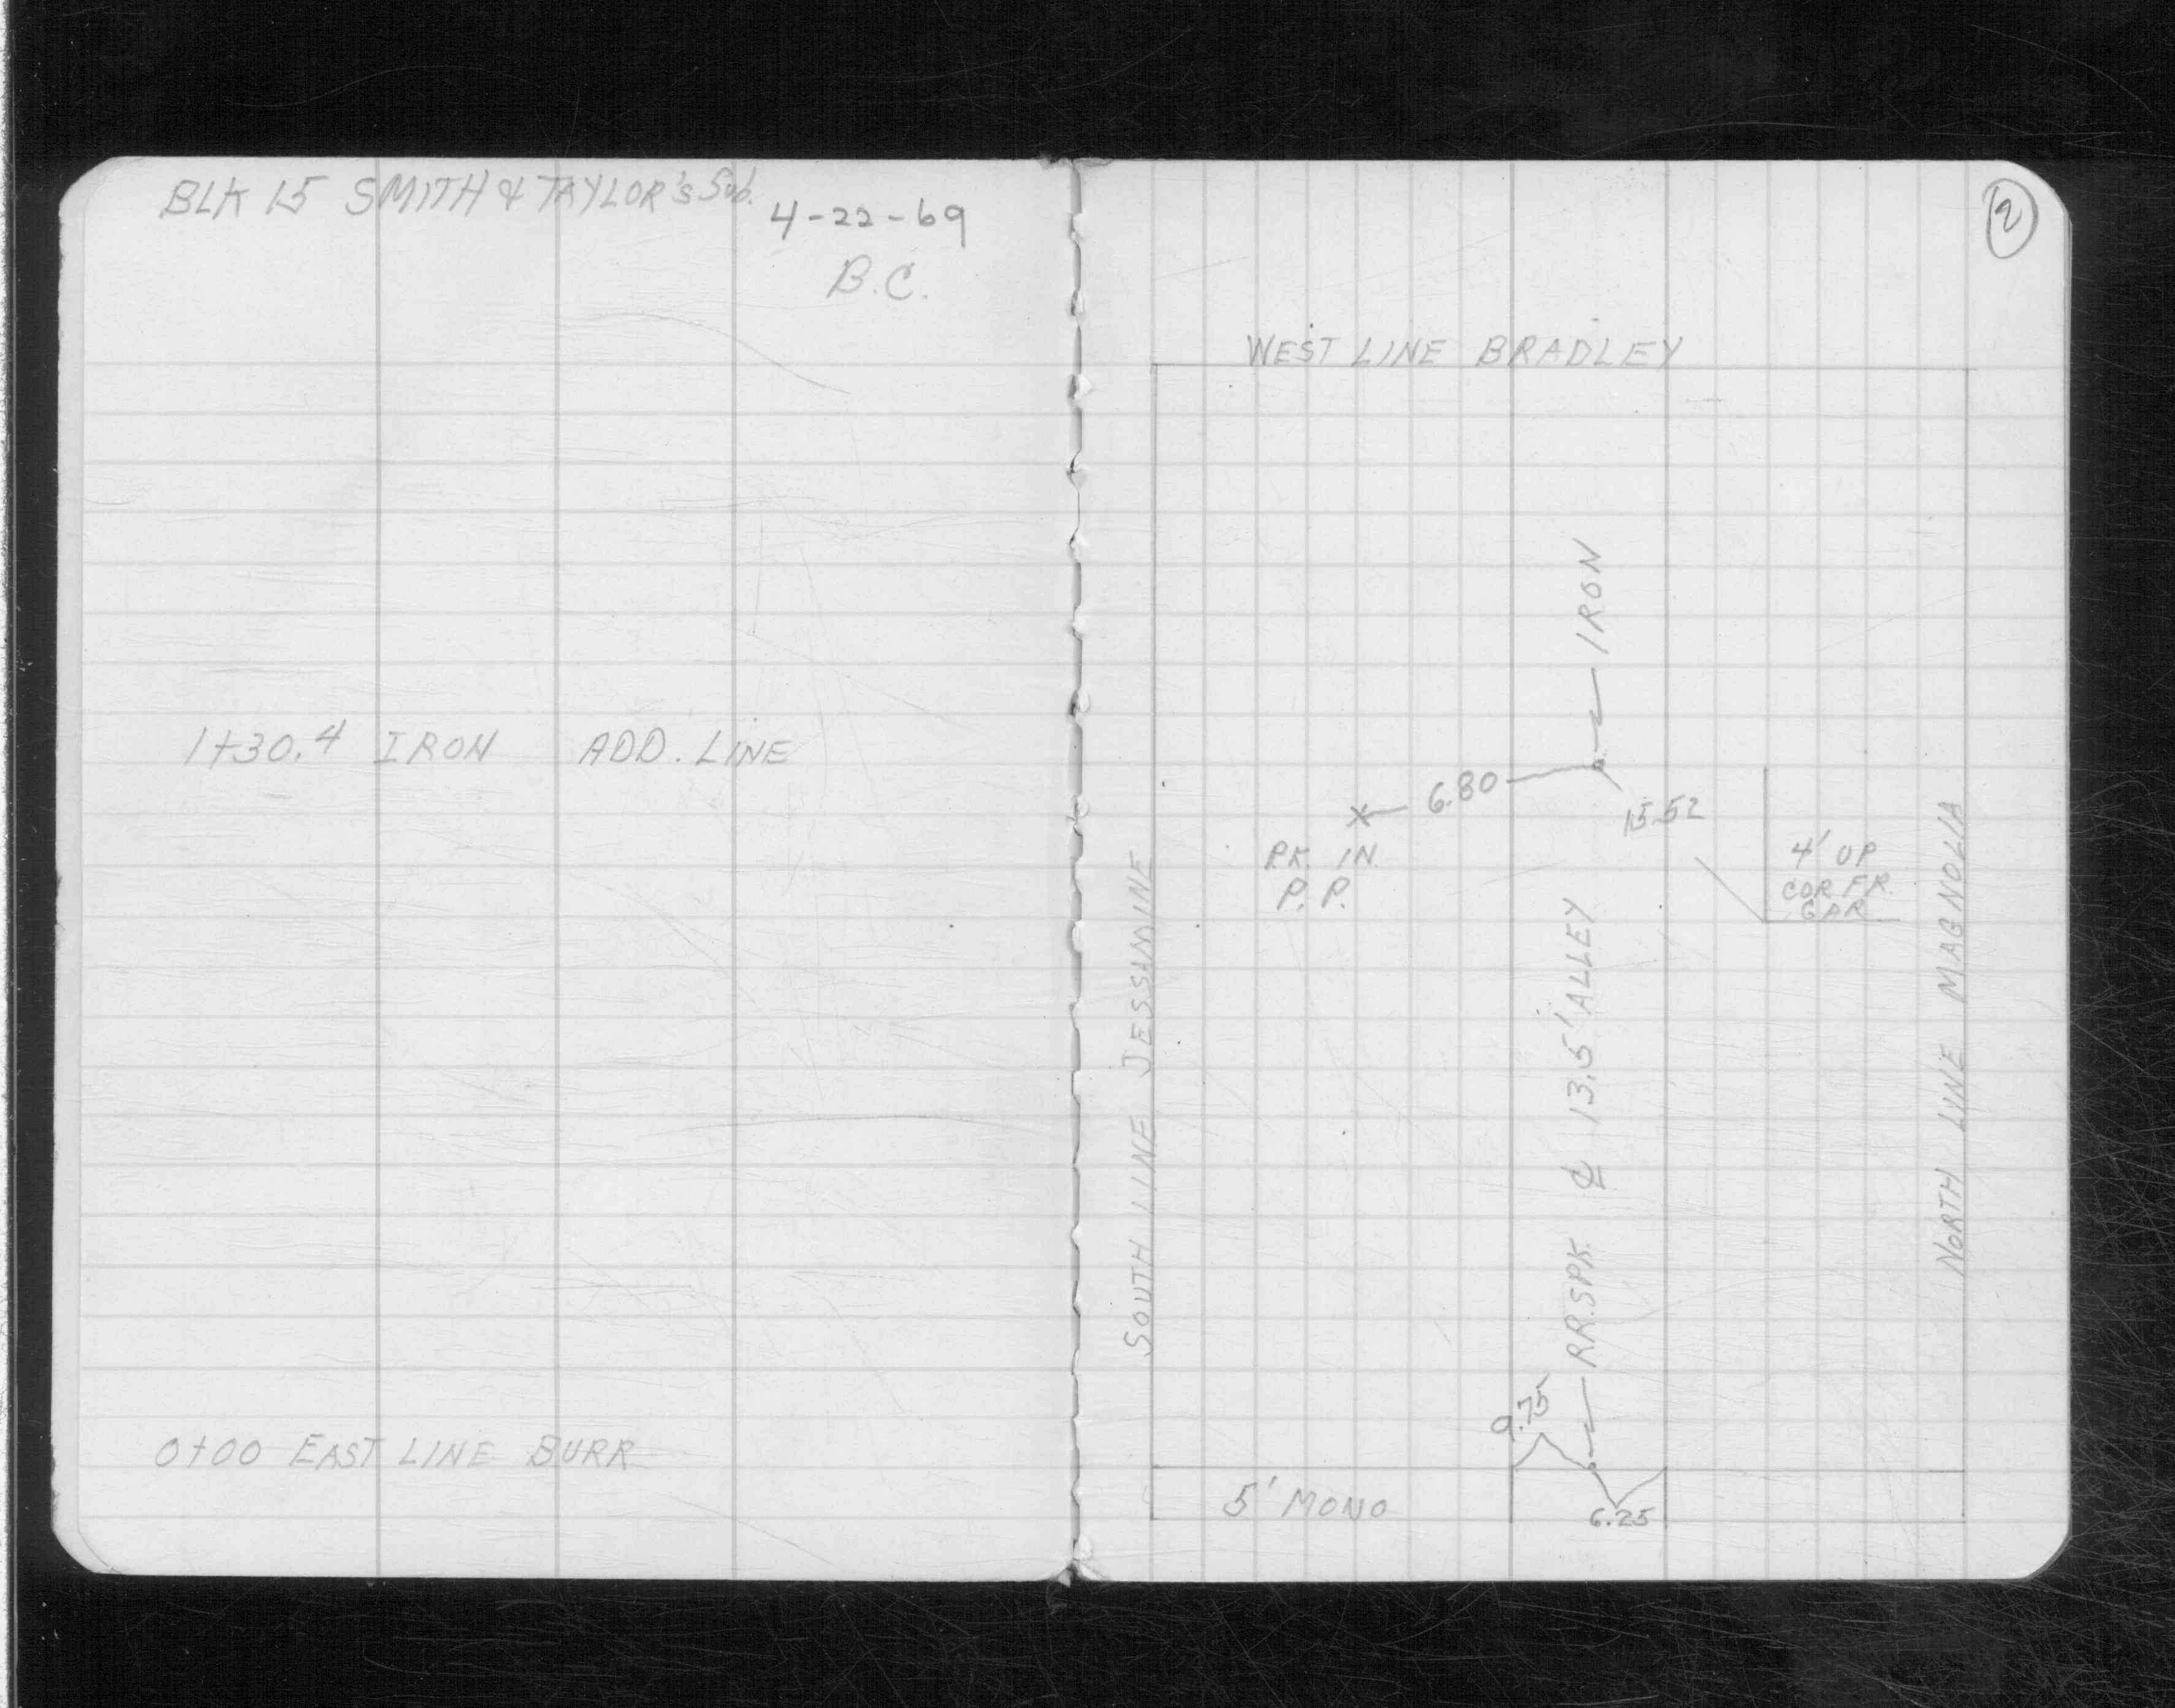 BLK 15 SMITH & TAYLOR'S Sub.
4-22-69
B.C.
1+30.4 IRON ADD. LINE
0+00 EAST LINE BURR
2
WEST LINE BRADLEY
IRON
6.80
15.52
PK. IN
P.P.
4' UP
COR. FR.
GAR.
SOUTH LINE JESSSMINE
RR.SPK. ℄ 13.5' ALLEY
NORTH LINE MAGNOLIA
9.75
5' MONO
6.25